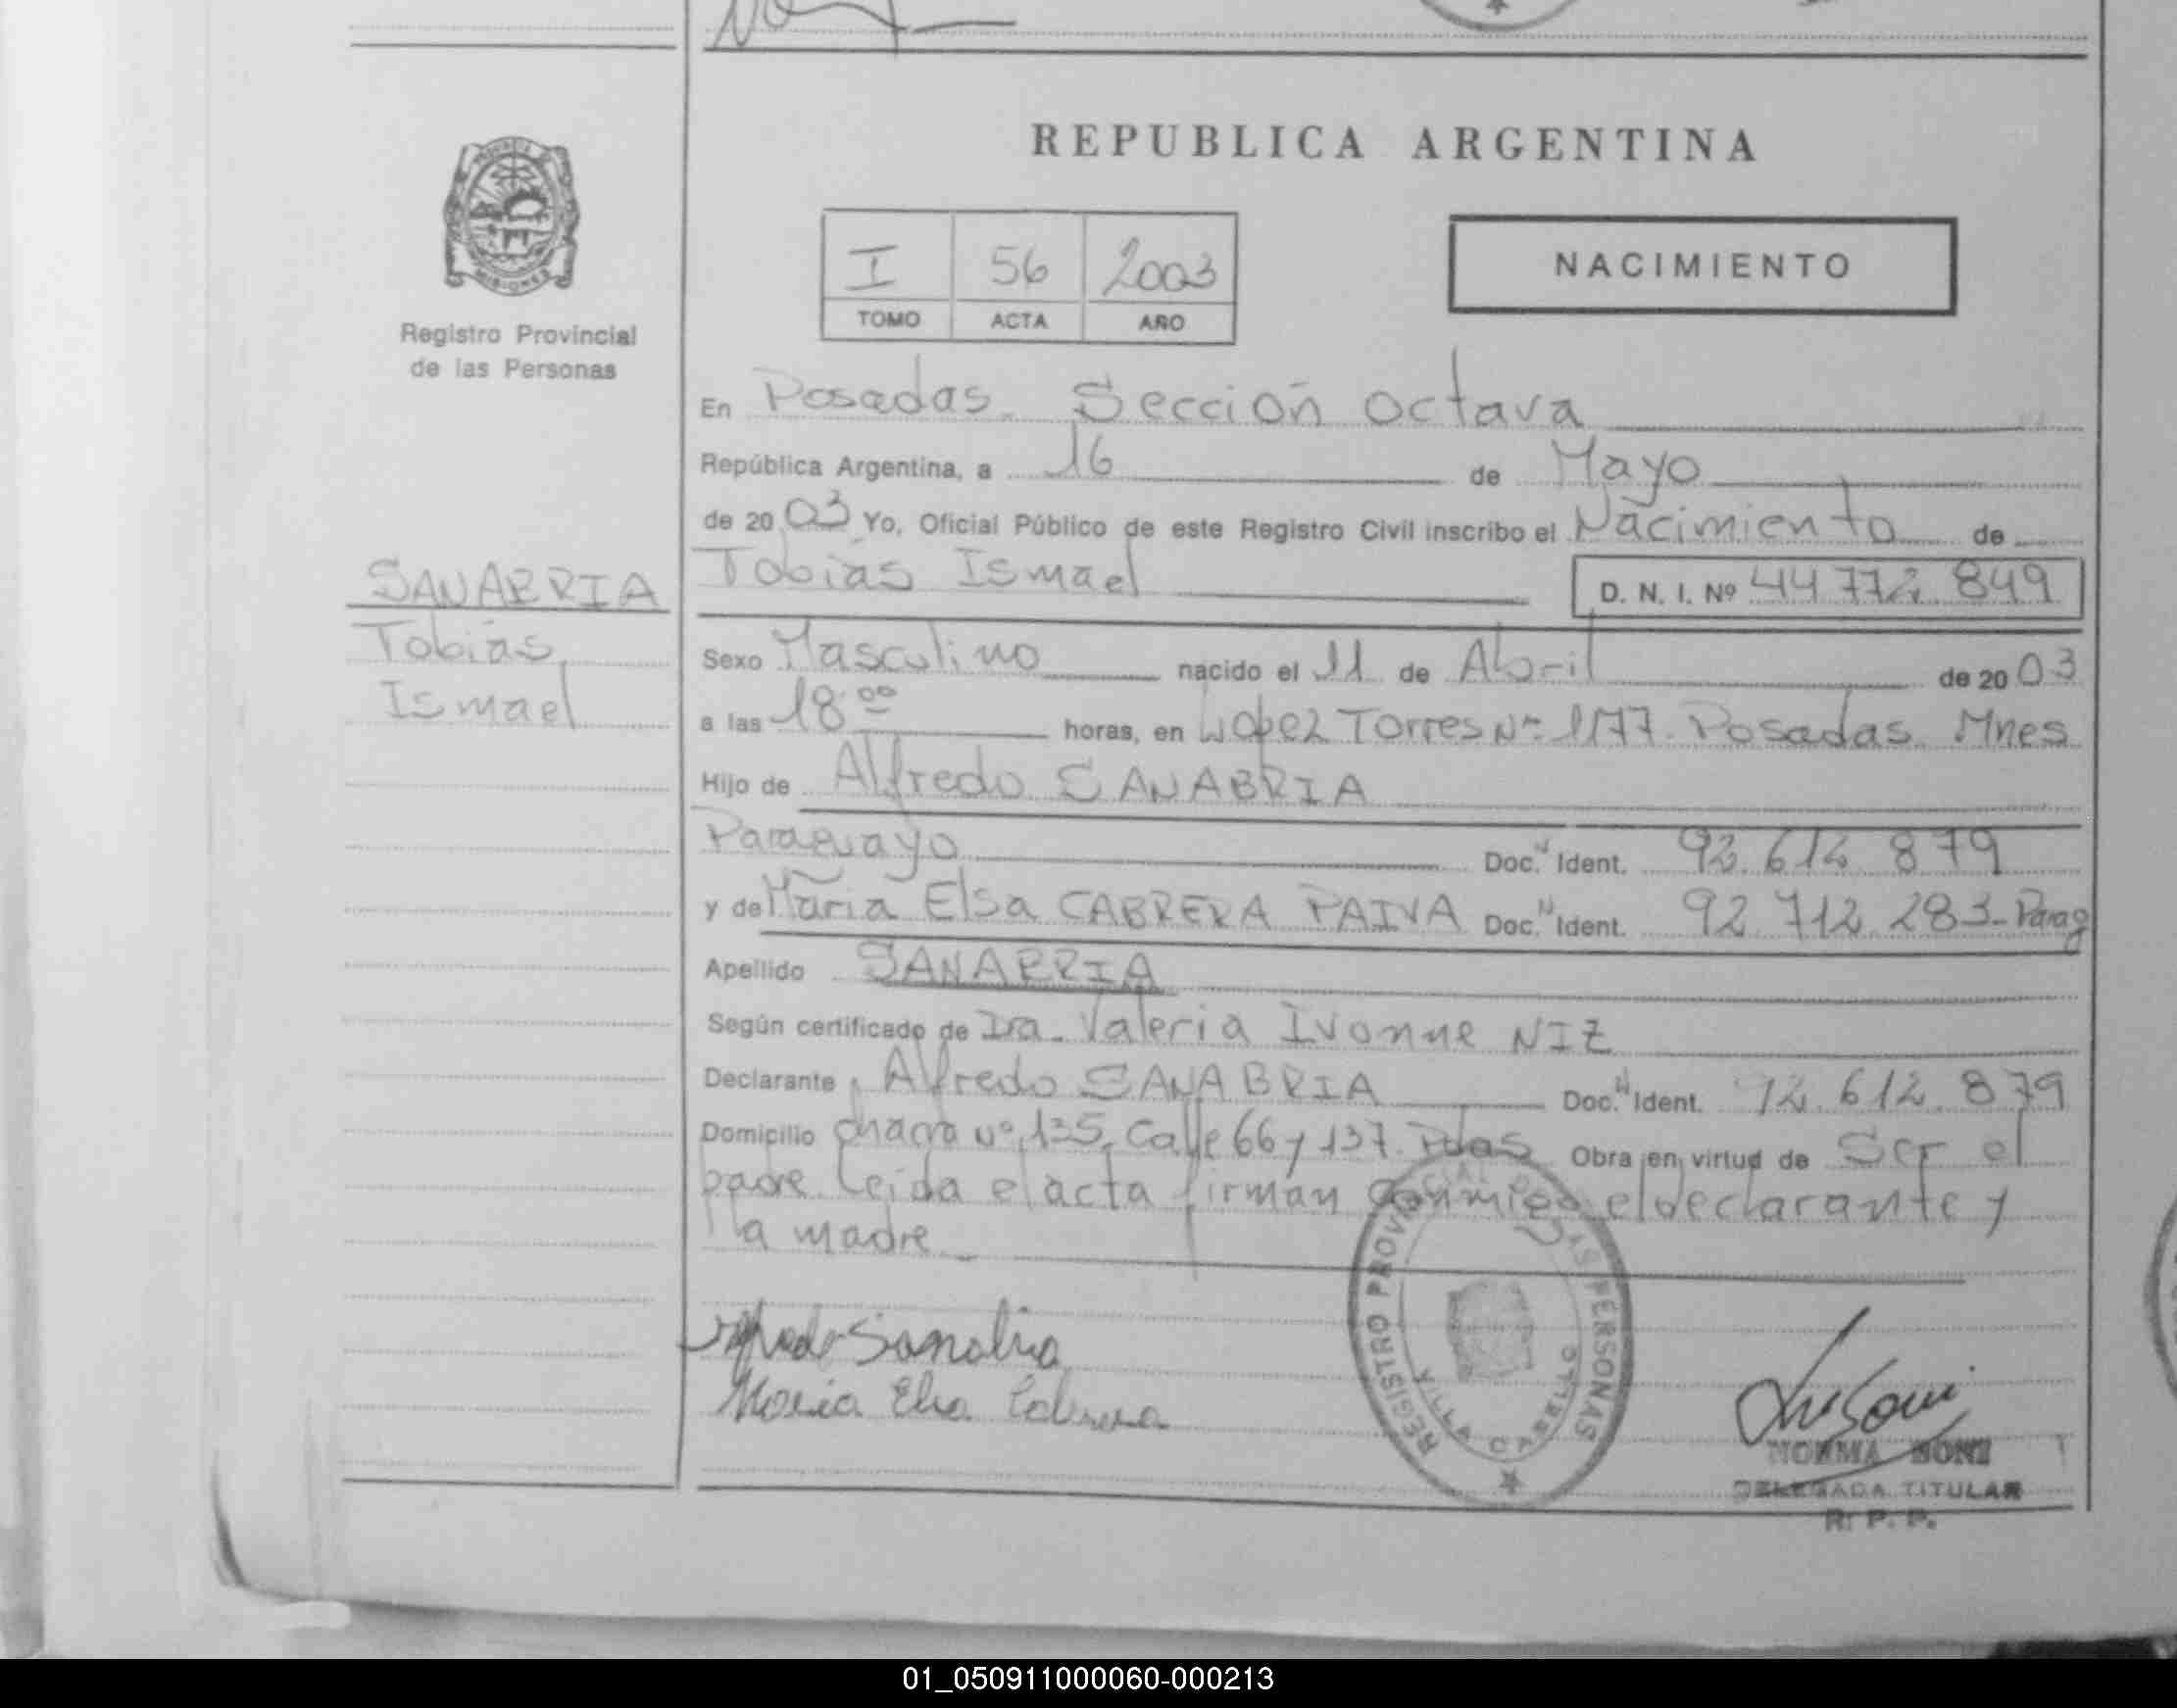 REPUBLICA ARGENTINA
I 56 2003
TOMO ACTA AÑO
NACIMIENTO
Registro Provincial
de las Personas
SANABRIA
Tobías
Ismael
En Posadas. Sección Octava
República Argentina, a 16 de Mayo
de 2003 Yo, Oficial Público de este Registro Civil inscribo el Nacimiento de
Tobías Ismael D. N. I. Nº 44 772 849
Sexo Masculino nacido el 11 de Abril de 2003
a las 18:00 horas, en López Torres Nº 1177. Posadas. Mnes
Hijo de Alfredo SANABRIA
Paraguayo Doc. N Ident. 92.612 879
y de María Elsa CABRERA PAIVA Doc. N Ident. 92 712 283-Parag
Apellido SANABRIA
Según certificado de Dra. Valeria Ivonne NIZ
Declarante Alfredo SANABRIA Doc. N Ident. 92.612.879
Domicilio chacra Nº 135, Calle 66 y 137. Pdas Obra en virtud de Ser el
padre. Leída el acta firman conmigo el declarante y
la madre
Alfredo Sanabria
Maria Elsa Cabrera
REGISTRO PROVINCIAL DE LAS PERSONAS
VILLA CABELLO
NORMA BONI
DELEGADA TITULAR
R. P. P.
01_050911000060-000213